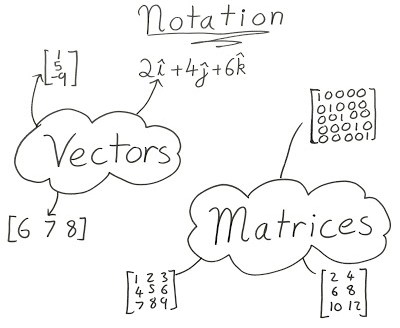 Notation
[1
5
-9]
2î+4ĵ+6k̂
Vectors
[6 7 8]
[10000
01000
00100
00010
00001]
Matrices
[1 2 3
4 5 6
7 8 9]
[2 4
6 8
10 12]